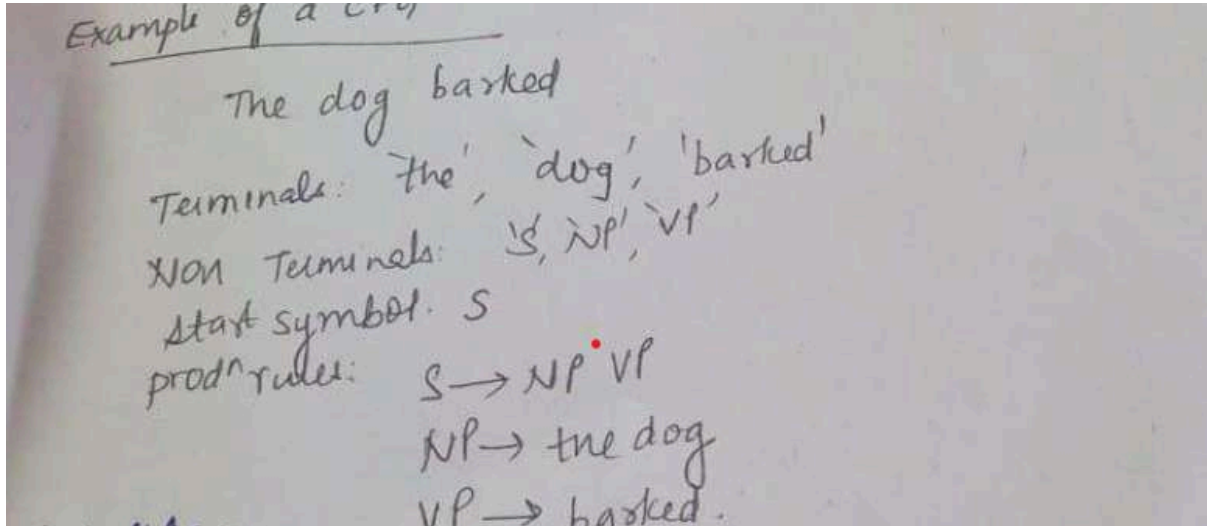 Example of a CFG
The dog barked
Terminals: 'the', 'dog', 'barked'
Non Terminals: 'S', 'NP', 'VP'
Start symbol. S
prodⁿ rules: S → NP VP
NP → the dog
VP → barked.